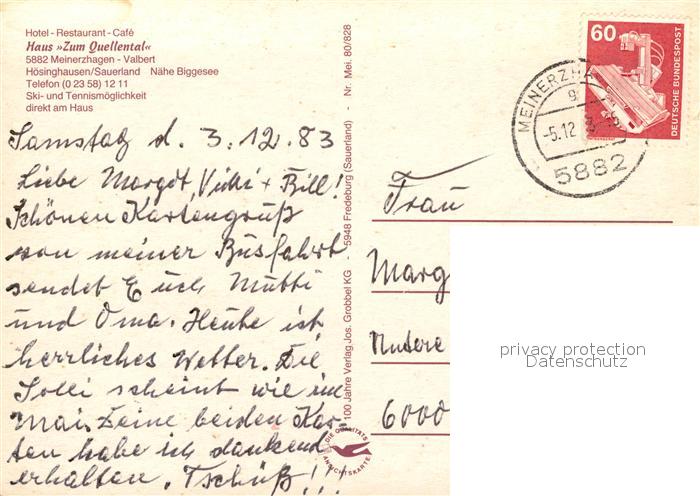 Hotel - Restaurant - Café
Haus »Zum Quellental«
5882 Meinerzhagen - Valbert
Hösinghausen/Sauerland Nähe Biggesee
Telefon (0 23 58) 12 11
Ski- und Tennismöglichkeit
direkt am Haus
Samstag d. 3.12.83
Liebe Margot, Vicki + Bill!
Schönen Kartengruß
von meiner Busfahrt
sendet Euch Mutti
und Oma. Heute ist
herrliches Wetter. Die
scheint wie im
Mai. Deine beiden Kar-
ten habe ich dankend
erhalten. Tschüß!!!
100 Jahre Verlag Jos. Grobbel KG - 5948 Fredeburg (Sauerland) - Nr. Mei. 80/828
DIE QUALITÄTS
ANSICHTSKARTE
60
DEUTSCHE BUNDESPOST
MEINERZHA
-5.12
5882
Frau
Marg
Untere
6000
privacy protection
Datenschutz